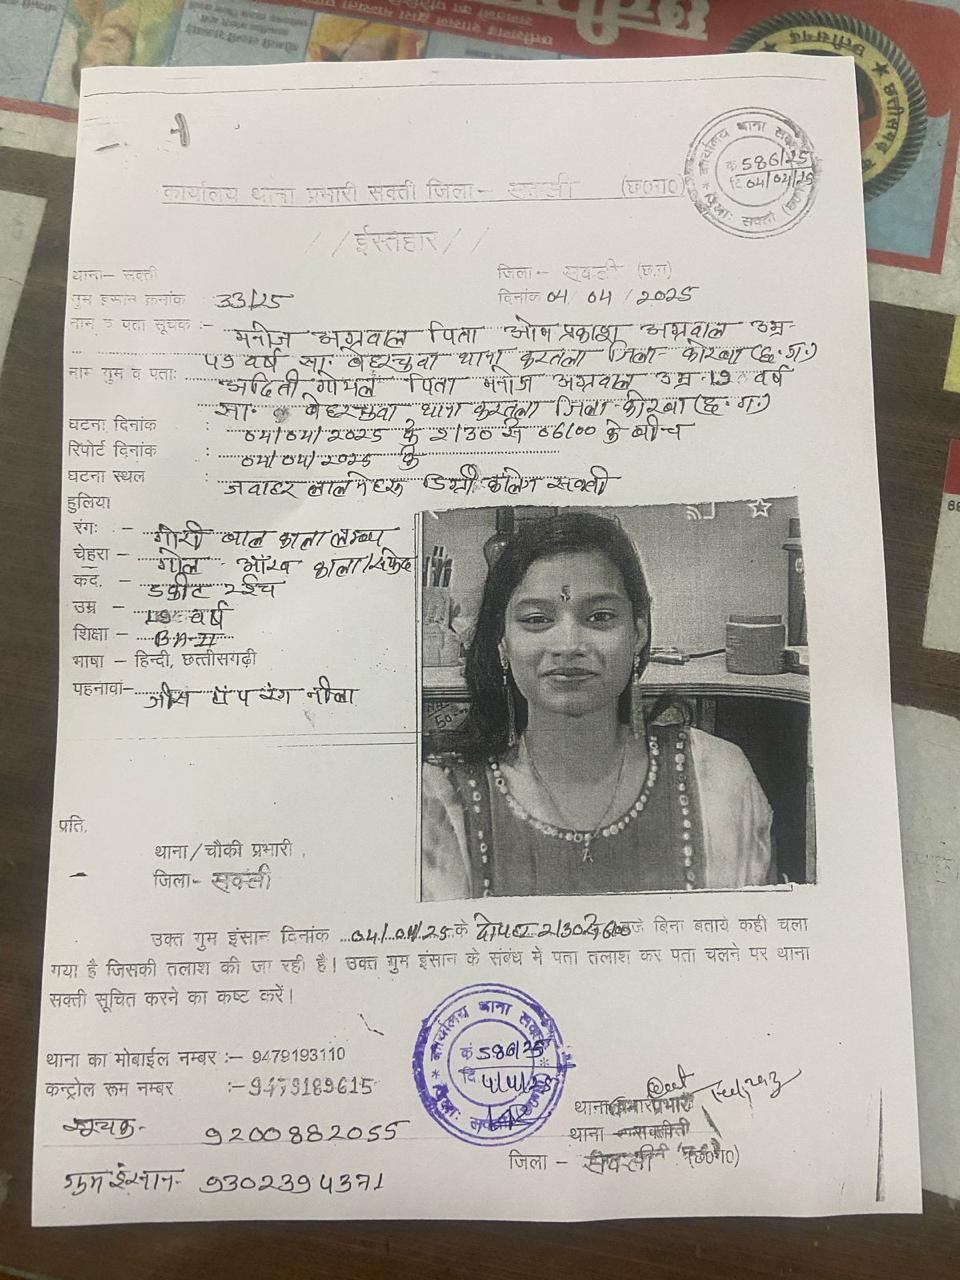 छत्तीसगढ़
कार्यालय थाना सक्ती
क्रं 586/25
दि 04/04/25
कार्यालय थाना प्रभारी सक्ती जिला- सक्ती (छ0ग0)
//ईस्तहार//
थाना- सक्ती जिला- सक्ती (छ.ग)
गुम इंसान क्रमांक 33/25 दिनांक 04/04/2025
नाम व पता सूचक :- मनोज अग्रवाल पिता ओम प्रकाश अग्रवाल उम्र-
५७ वर्ष सा. बेहरचुवा थाना करतला जिला- कोरबा (छ.ग.)
नाम गुम व पता: अदिती गोयल पिता मनोज अग्रवाल उम्र 19 वर्ष
सा. बेहरचुवा थाना करतला जिला-कोरबा (छ.ग.)
घटना दिनांक : 04/04/2025 के 2/30 से 06/00 के बीच
रिपोर्ट दिनांक : 04/04/2025 के
घटना स्थल : जवाहर लाल नेहरु डिग्री कॉलेज सक्ती
हुलिया
रंग: - गोरी बाल काला लम्बा
चेहरा - गोल आँख काला/सफेद
कद. - 5 फीट 2 ईंच
उम्र - 19 वर्ष
शिक्षा - BA-II
भाषा - हिन्दी, छत्तीसगढ़ी
पहनावा- जींस टॉप रंग नीला
प्रति,
थाना/चौकी प्रभारी,
जिला- सक्ती
उक्त गुम इंसान दिनांक 04/04/25 के दोपहर 2/30 से 6/00 बजे बिना बताये कही चला
गया है जिसकी तलाश की जा रही है। उक्त गुम इंसान के संबंध में पता तलाश कर पता चलने पर थाना
सक्ती सूचित करने का कष्ट करें।
कार्यालय थाना सक्ती
क्रं 586/25
दि 4/4/25
थाना का मोबाईल नम्बर :- 9479193110
कन्ट्रोल रूम नम्बर :- 9479189615
सूचक- 9200882055
गुम इंसान- 9302394371
थाना प्रभारी
थाना सक्ती
जिला - सक्ती (छ0ग0)